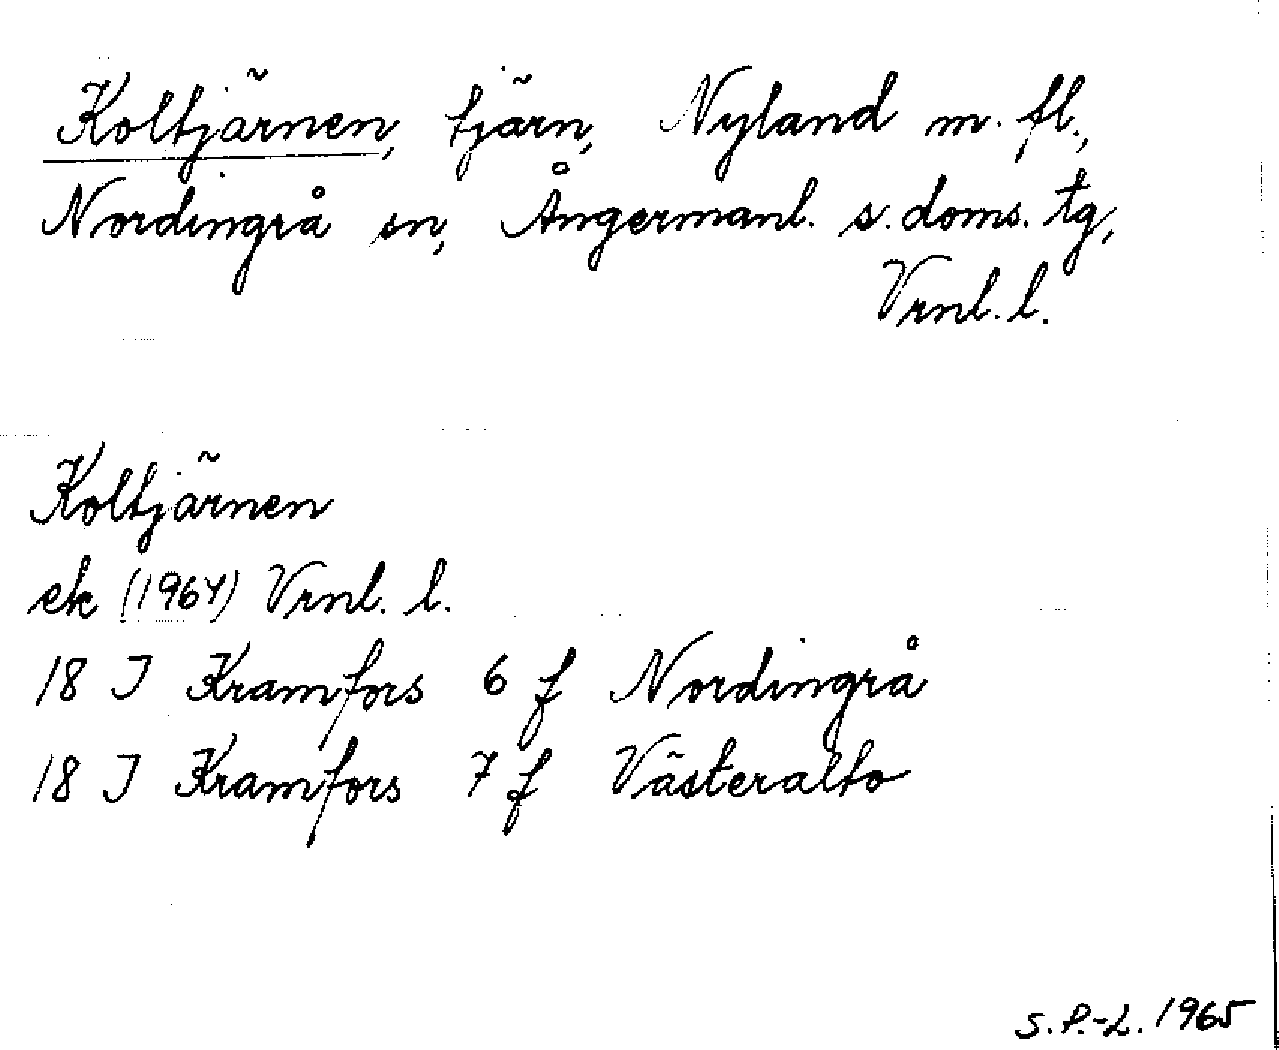 Koltjärnen, tjärn, Nyland m. fl.,
Nordingrå sn, Ångermanl. s. doms. tg,
Vrnl. l.
Koltjärnen
ek (1964) Vrnl. l.
18 J Kramfors 6 f Nordingrå
18 J Kramfors 7 f Västeralto
S. P.-L. 1965